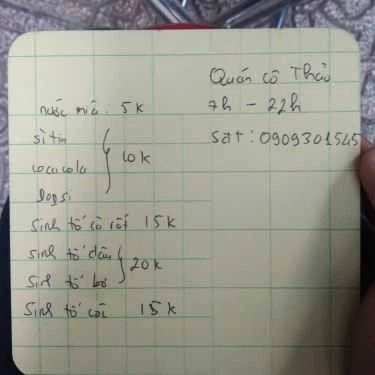 Quán cô Thảo
7h - 22h
sđt: 0909301545
nước mía: 5k
sì tin
cocacola
10k
sinh tố cà rốt 15k
sinh tố dâu
sinh tố bơ
20k
sinh tố cóc 15k